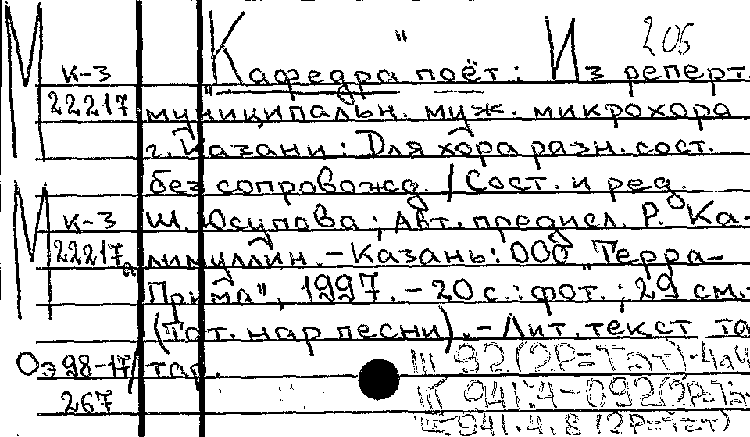 205
М к-3 "Кафедра" поёт: Из реперт.
22217 муниципальн. муж. микрохора
г. Казани: Для хора разн. сост.
без сопровожд. / Сост. и ред.
М к-3 Ш. Юсупова; Авт. предисл. Р. Ка-
22217а лимуллин. - Казань: ООО "Терра-
Прима", 1997. - 20 с.: фот.; 29 см. -
(Тат. нар песни). - Лит. текст та
Оэ 98-17/ тар.
267
III 92(2Р=Тат)-4
III 941.4-092(2Р=Тат)
941.4.8 (2Р=Тат)